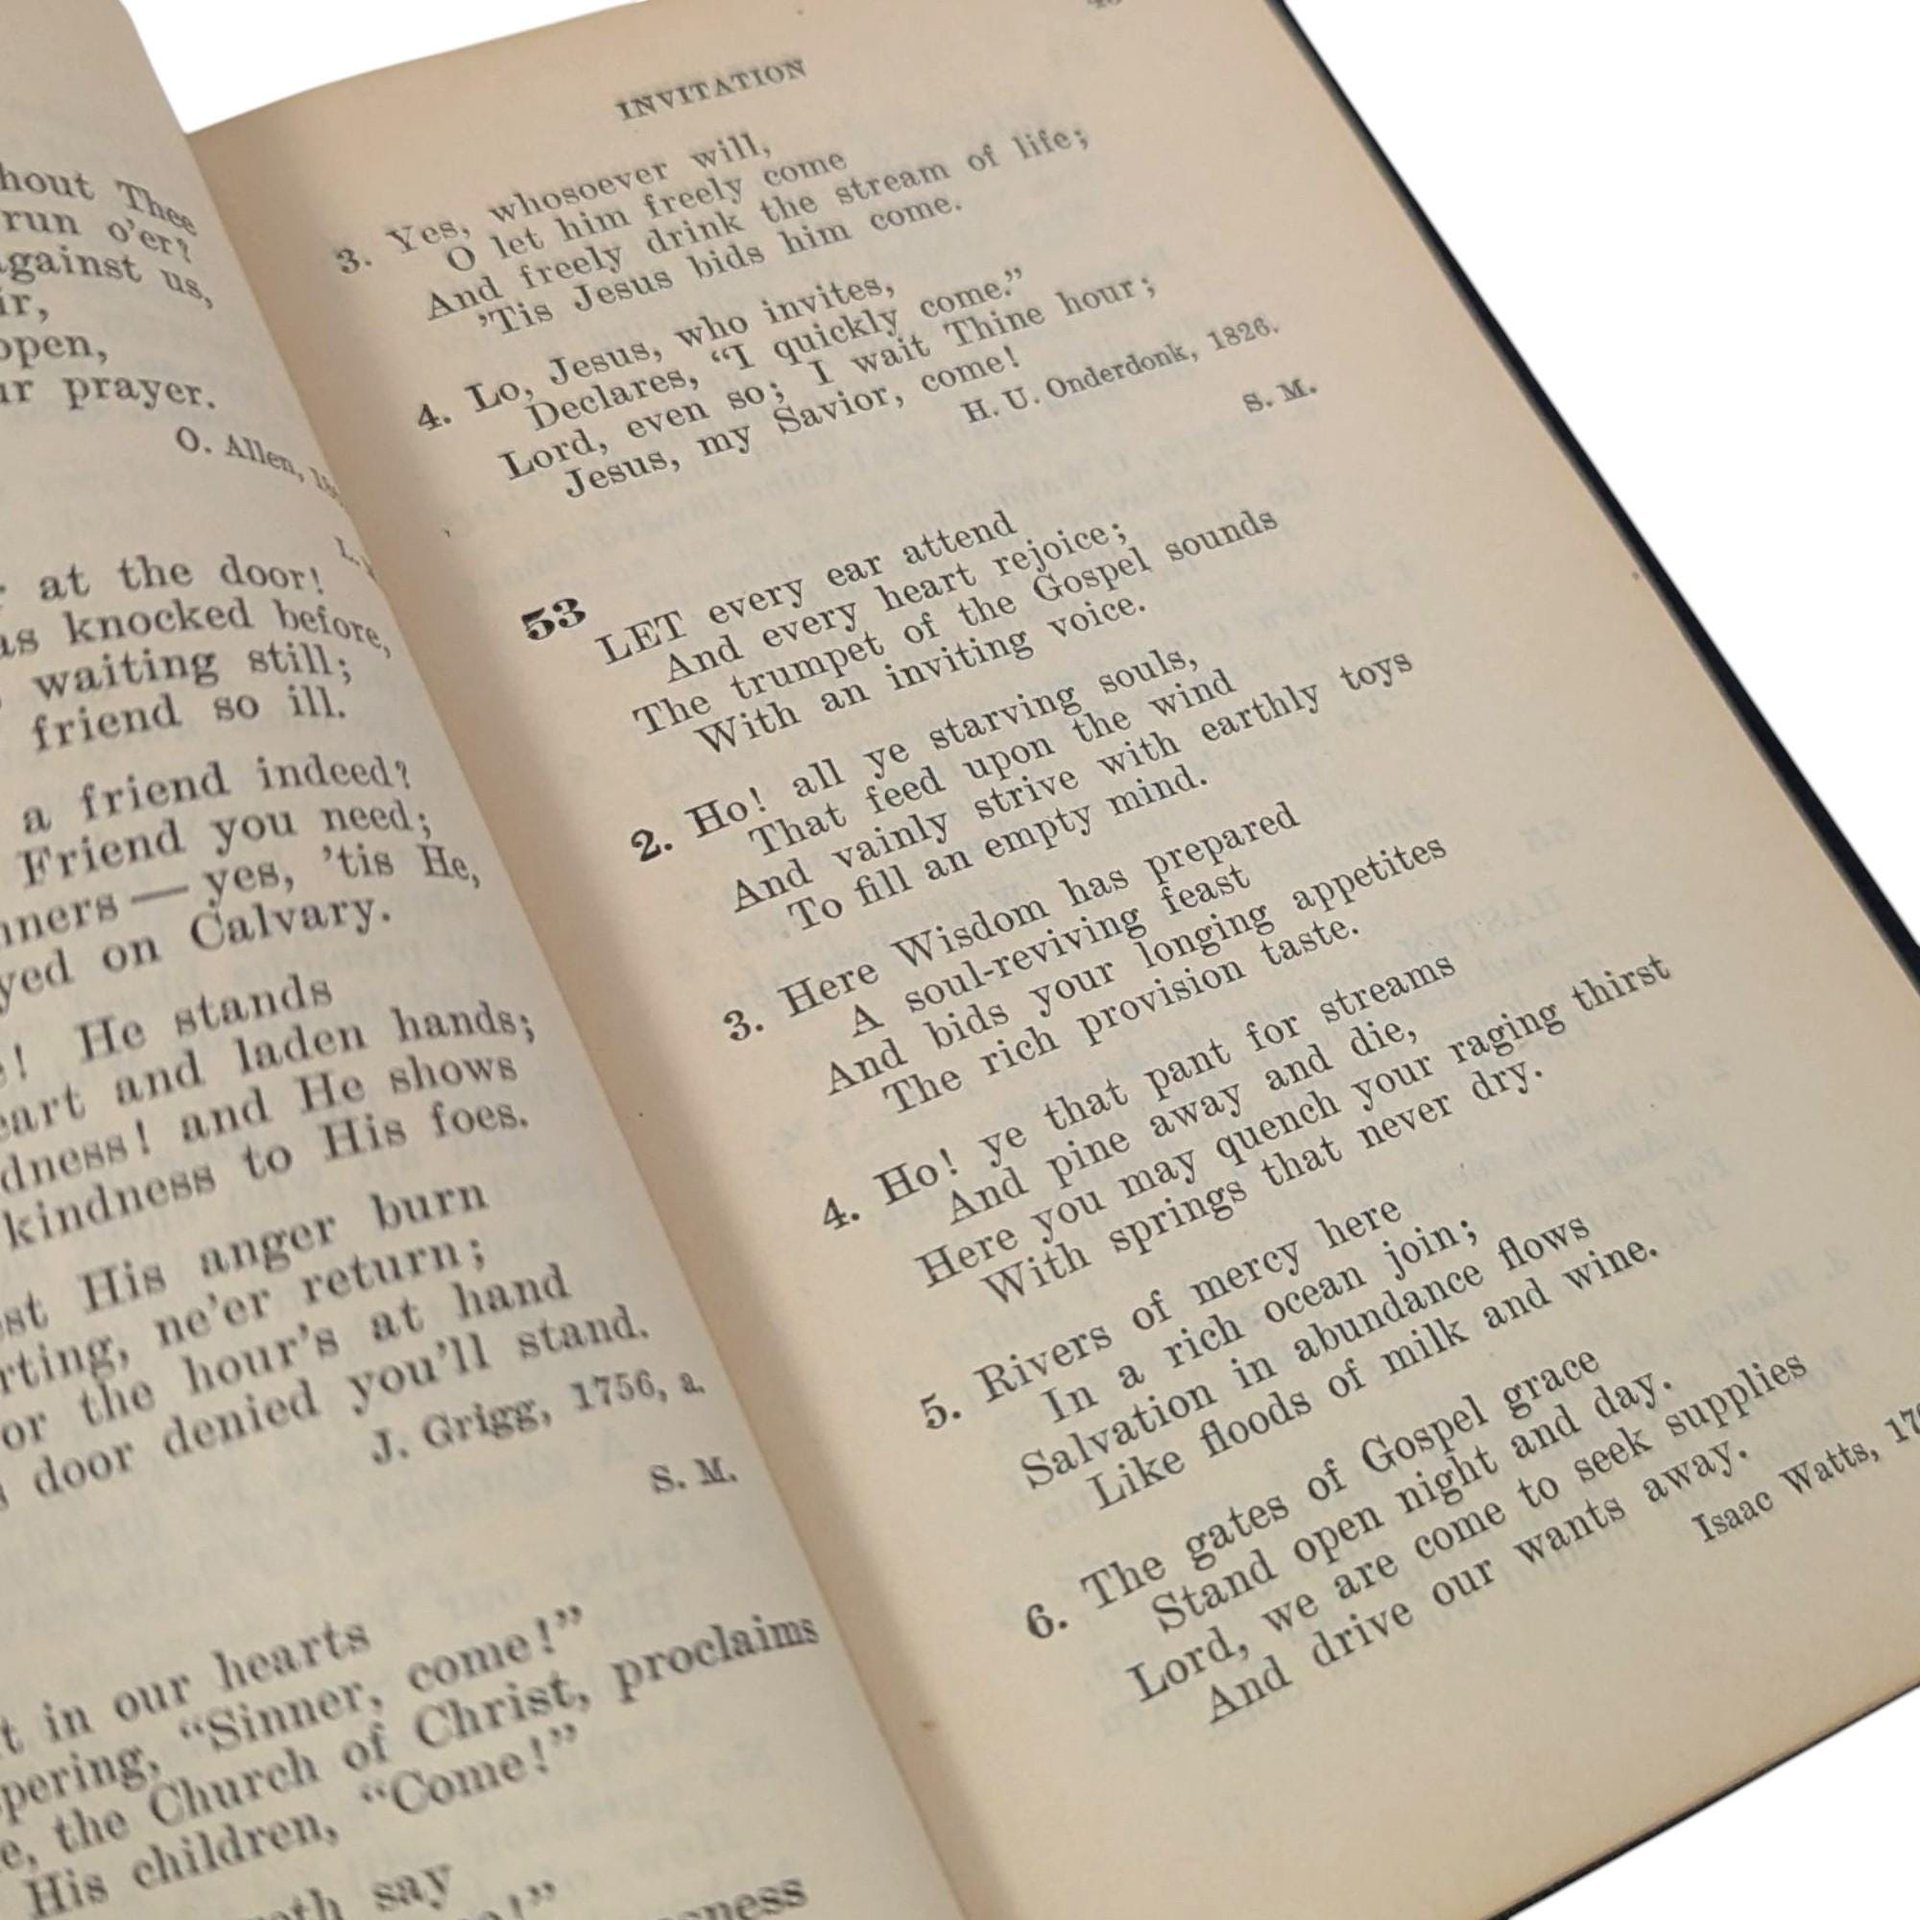 hout Thee
run o'er?
against us,
ir,
open,
ur prayer.
O. Allen,
at the door!
as knocked before,
waiting still;
friend so ill.
a friend indeed?
Friend you need;
nners — yes, 'tis He,
yed on Calvary.
e! He stands
eart and laden hands;
dness! and He shows
kindness to His foes.
est His anger burn
rting, ne'er return;
or the hour's at hand
door denied you'll stand.
J. Grigg, 1756, a.
S. M.
t in our hearts
pering, "Sinner, come!"
e, the Church of Christ, proclaims
His children, "Come!"
eth say
e!"
usness
INVITATION
3. Yes, whosoever will,
O let him freely come
And freely drink the stream of life;
'Tis Jesus bids him come.
4. Lo, Jesus, who invites,
Declares, "I quickly come."
Lord, even so; I wait Thine hour;
Jesus, my Savior, come!
H. U. Onderdonk, 1826.
S. M.
53
LET every ear attend
And every heart rejoice;
The trumpet of the Gospel sounds
With an inviting voice.
2. Ho! all ye starving souls,
That feed upon the wind
And vainly strive with earthly toys
To fill an empty mind.
3. Here Wisdom has prepared
A soul-reviving feast
And bids your longing appetites
The rich provision taste.
4. Ho! ye that pant for streams
And pine away and die,
Here you may quench your raging thirst
With springs that never dry.
5. Rivers of mercy here
In a rich ocean join;
Salvation in abundance flows
Like floods of milk and wine.
6. The gates of Gospel grace
Stand open night and day.
Lord, we are come to seek supplies
And drive our wants away.
Isaac Watts, 170